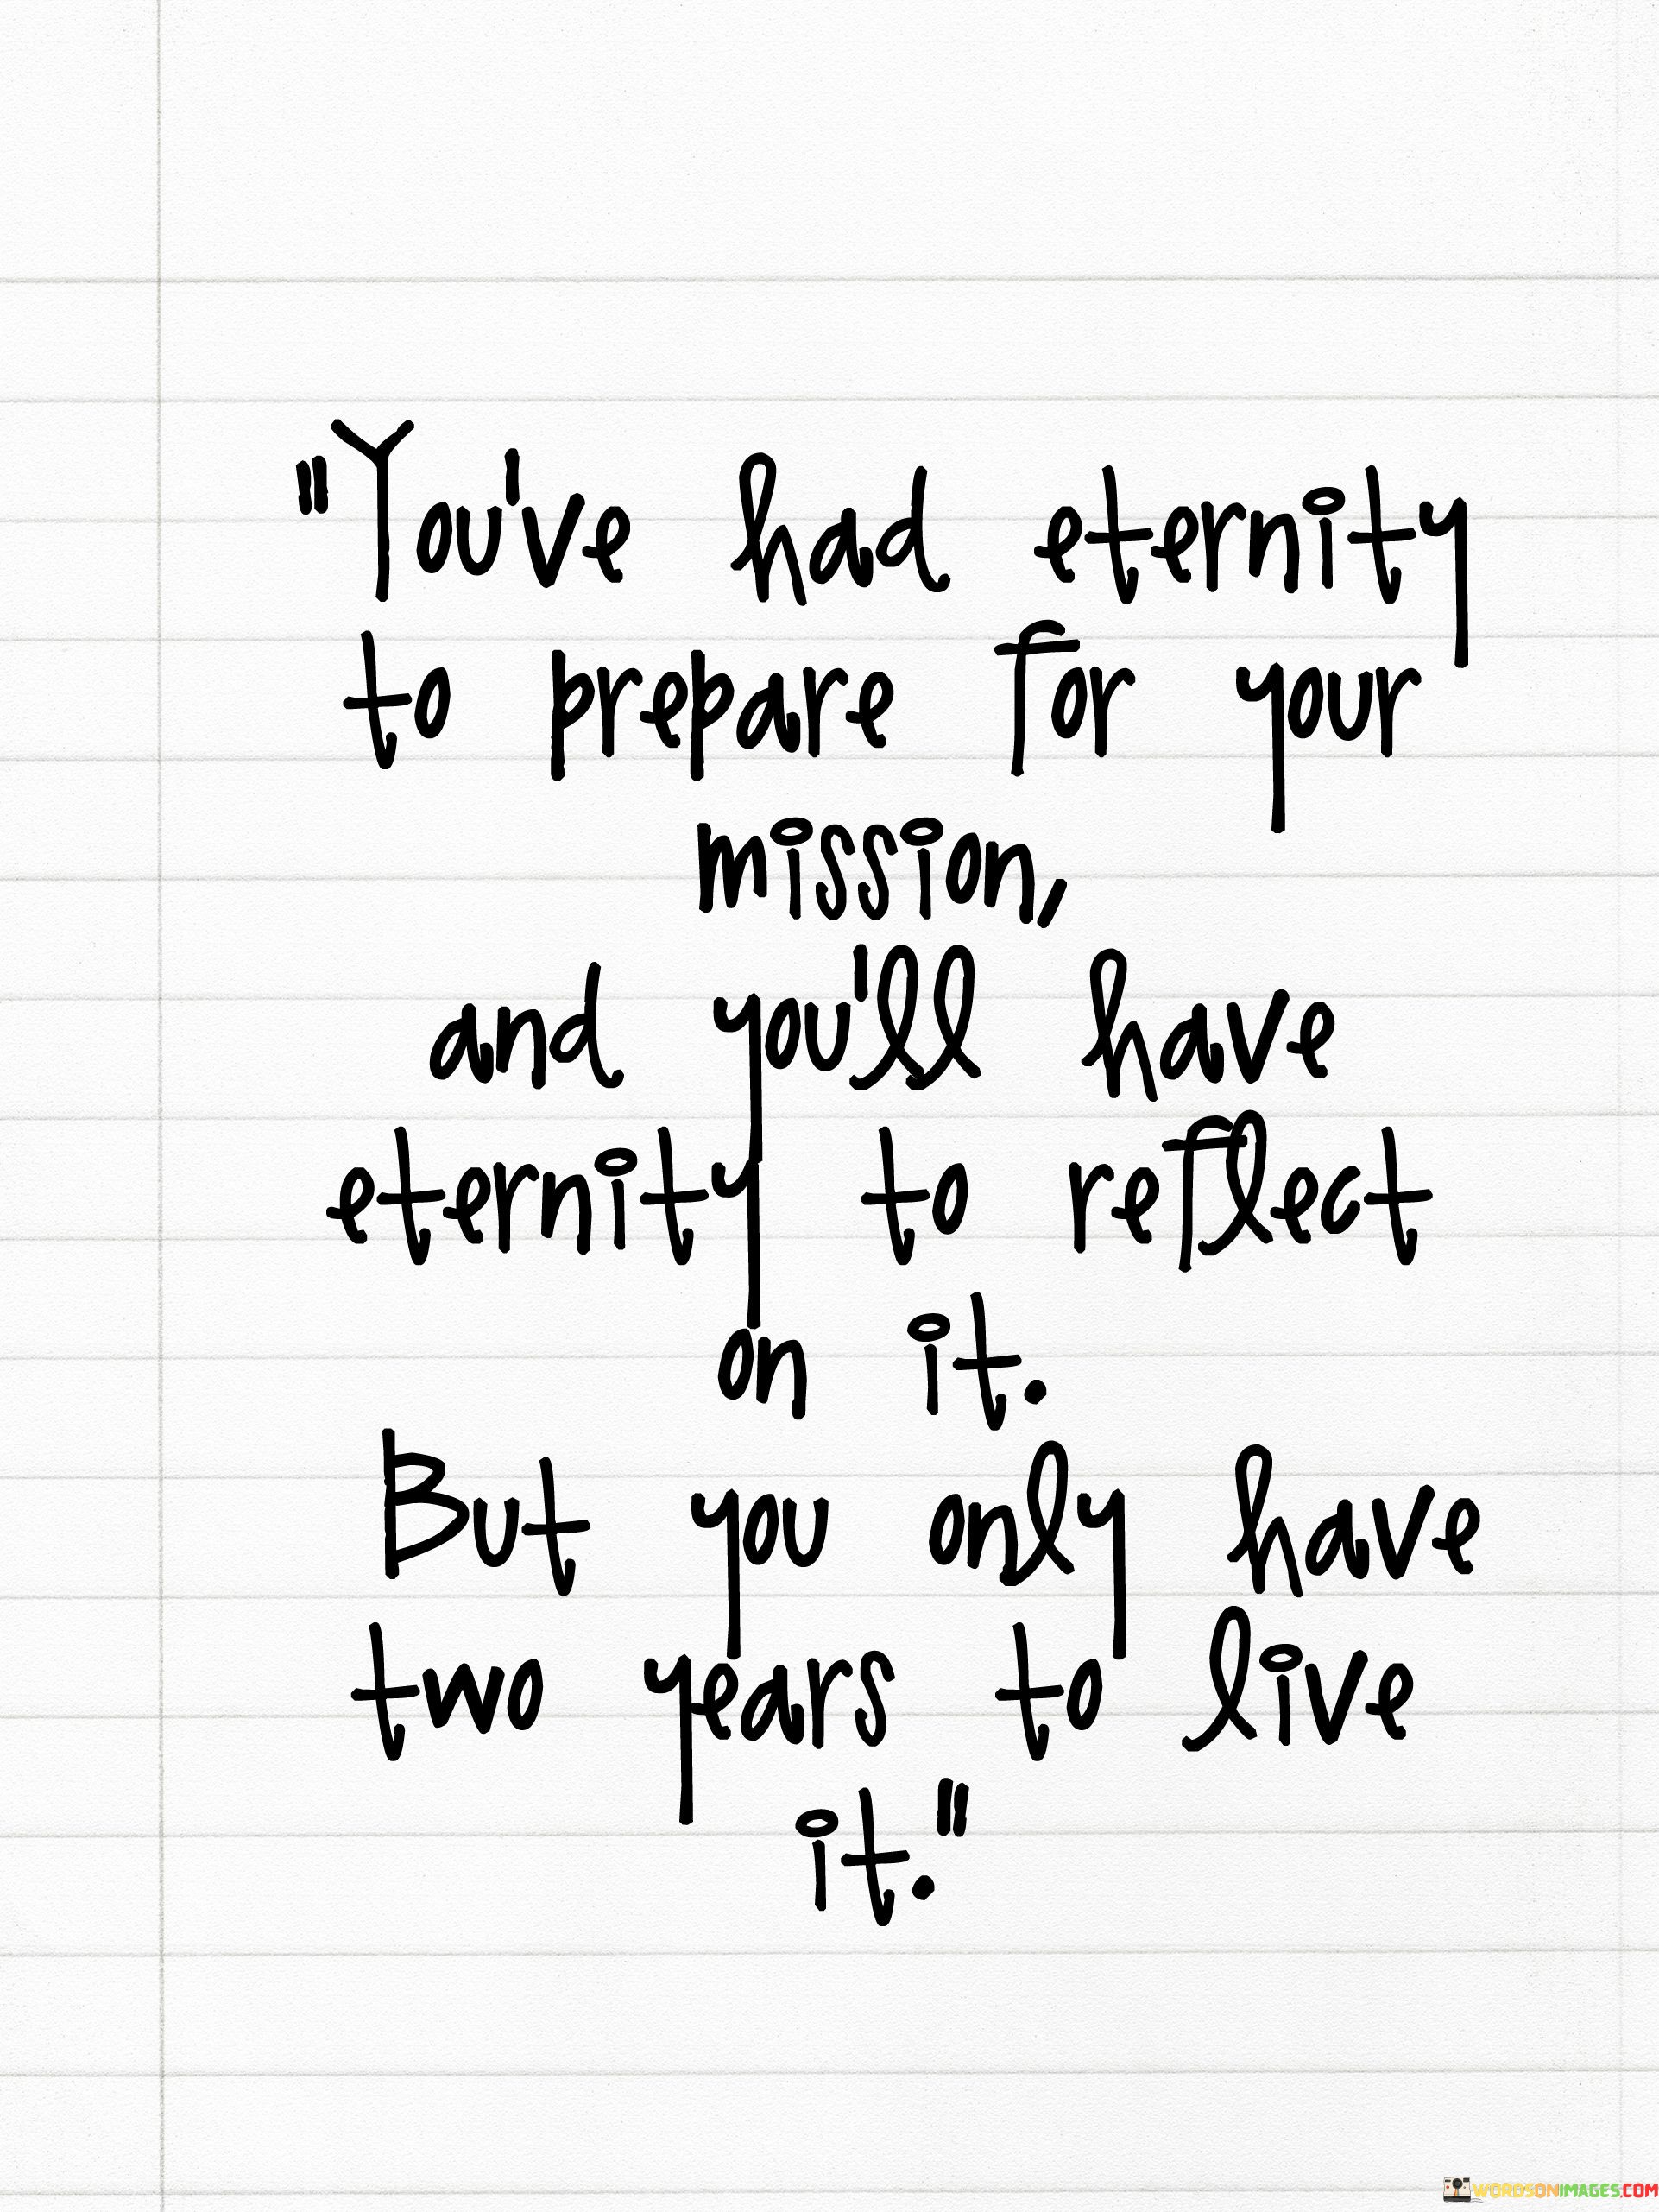 "You've had eternity
to prepare for your
mission,
and you'll have
eternity to reflect
on it.
But you only have
two years to live
it."
WORDSONIMAGES.COM